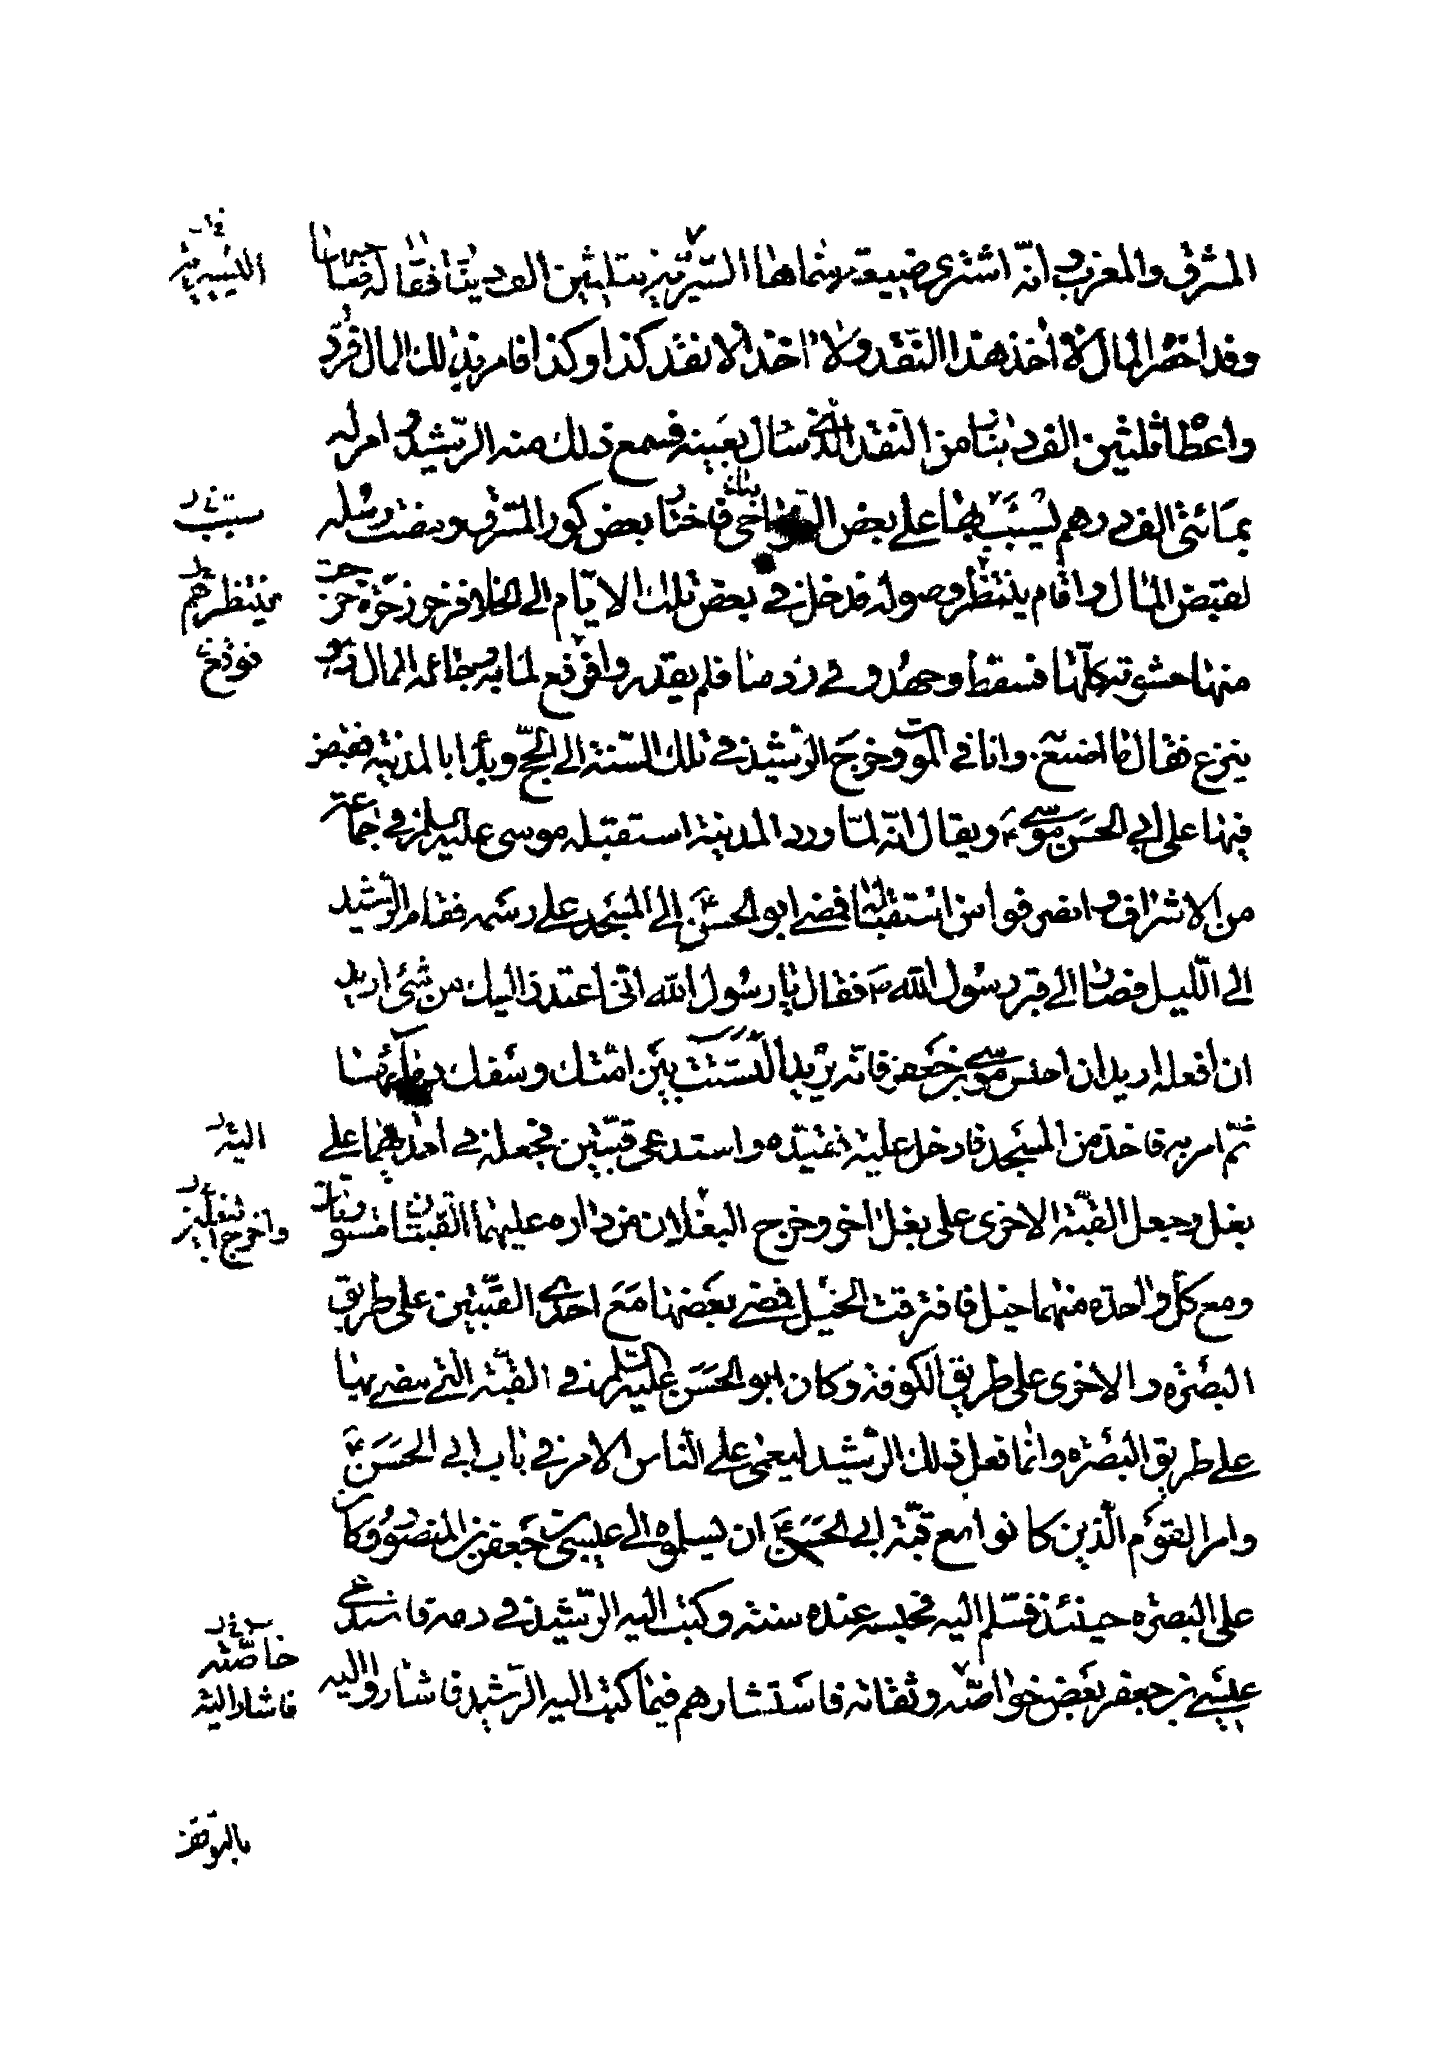 المشرق والمغرب وانّه اشترى ضيعة سمّاها اليسيريّة بثلثين الف دينار فقال له صاحبها
وقد احضر المال لا آخذ هذا النّقد ولا آخذ الّا نقد كذا وكذا فامر بذلك المال فردّ
واعطاه ثلثين الف دينار من النّقد الّذي سأل بعينه فسمع ذلك منه الرّشيد وامر له
بمأتي الف درهم تسبّب بها على بعض النواحي فاختار بعض كور المشرق ومضت رسله
لقبض المال واقام ينتظر وصوله فدخل في بعض تلك الايّام الى الخلاء فزحر زحرة خرجت
منها حشوته كلّها فسقط وجهدوا في ردها فلم يقدروا فوقع لما به وجائه المال وهو
ينزع فقال ما اصنع به وانا في الموت وخرج الرّشيد في تلك السّنة الى الحجّ وبدأ بالمدينة فقبض
فيها على ابي الحسن موسى ع ويقال انّه لمّا ورد المدينة استقبله موسى عليه السلم في جماعة
من الاشراف وانصرفوا من استقباله فمضى ابو الحسن ع الى المسجد على رسمه فقام الرّشيد
الى اللّيل فصار الى قبر رسول الله ص فقال يا رسول الله انّي اعتذر اليك من شئ اريد
ان افعله اريد ان احبس موسى بن جعفر فانّه يريد التّشتّت بين امّتك وسفك دمائها
ثمّ امر به فاخذ من المسجد فادخل عليه فقيّده واستدعى قبّتين فجعله في احديهما على
بغل وجعل القبّة الاخرى على بغل آخر وخرج البغلان من داره عليهما القبّتان مستورتان
ومع كلّ واحدة منهما خيل فافترقت الخيل فمضى بعضها مع احدى القبّتين على طريق
البصرة والاخرى على طريق الكوفة وكان ابو الحسن عليه السلم في القبّة الّتي مضى بها
على طريق البصرة وانّما فعل ذلك الرّشيد ليعمي على النّاس الامر في باب ابي الحسن ع
وامر القوم الّذين كانوا مع قبّة ابي الحسن ع ان يسلّموه الى عيسى بن جعفر بن المنصور وكان
على البصرة حينئذ فسلّم اليه فحبسه عنده سنة وكتب اليه الرّشيد في دمه فاستدعى
عيسى بن جعفر بعض خواصّه وثقاته فاستشارهم فيما كتب اليه الرّشيد فاشاروا اليه
اليسيرية
سبب
ينتظرهم
فوقع
اليه
واخرج البغلين
خاصّته
فاشار اليه
بالتوقف